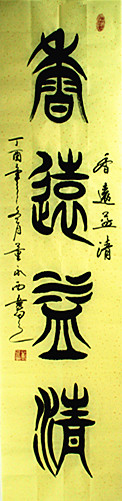 香遠益清
香遠益清
丁酉年